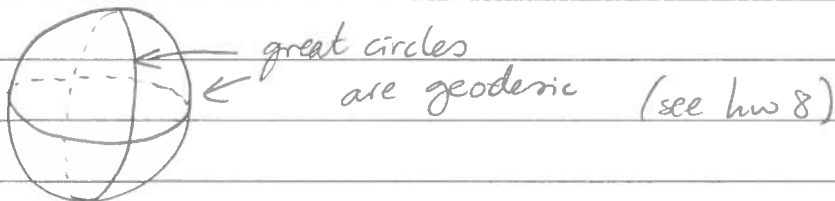 great circles
are geodesic (see hw 8)